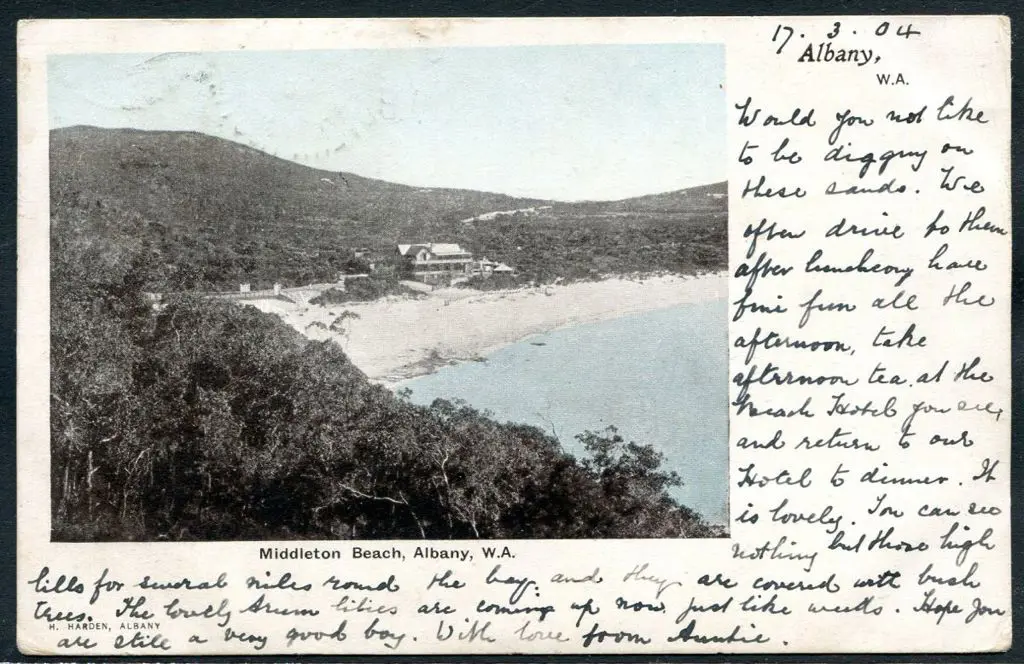 17. 3. 04
Albany,
W.A.
Would you not like
to be digging on
these sands. We
often drive to them
after luncheon, have
fine fun all the
afternoon, take
afternoon tea at the
Beach Hotel you see,
and return to our
Hotel to dinner. It
is lovely. You can see
nothing but those high
Middleton Beach, Albany, W.A.
hills for several miles round the bay, and they are covered with bush
trees. The lovely Arum lilies are coming up now just like weeds. Hope you
H. HARDEN, ALBANY
are still a very good boy. With love from Auntie.